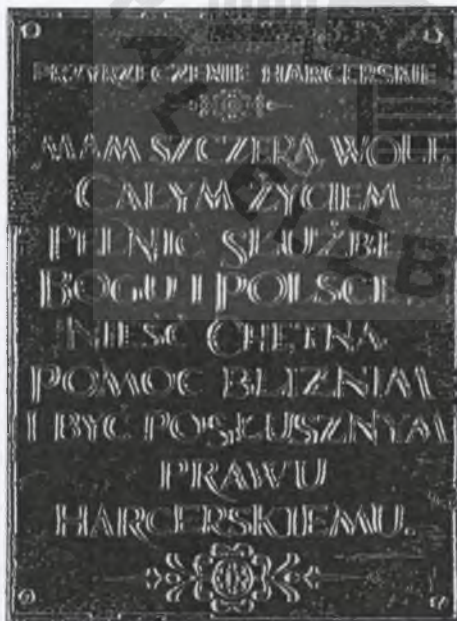 PRZYRZECZENIE HARCERSKIE
MAM SZCZERĄ WOLĘ
CAŁYM ŻYCIEM
PEŁNIĆ SŁUŻBĘ
BOGU I POLSCE,
NIEŚĆ CHĘTNĄ
POMOC BLIŹNIM
I BYĆ POSŁUSZNYM
PRAWU
HARCERSKIEMU.